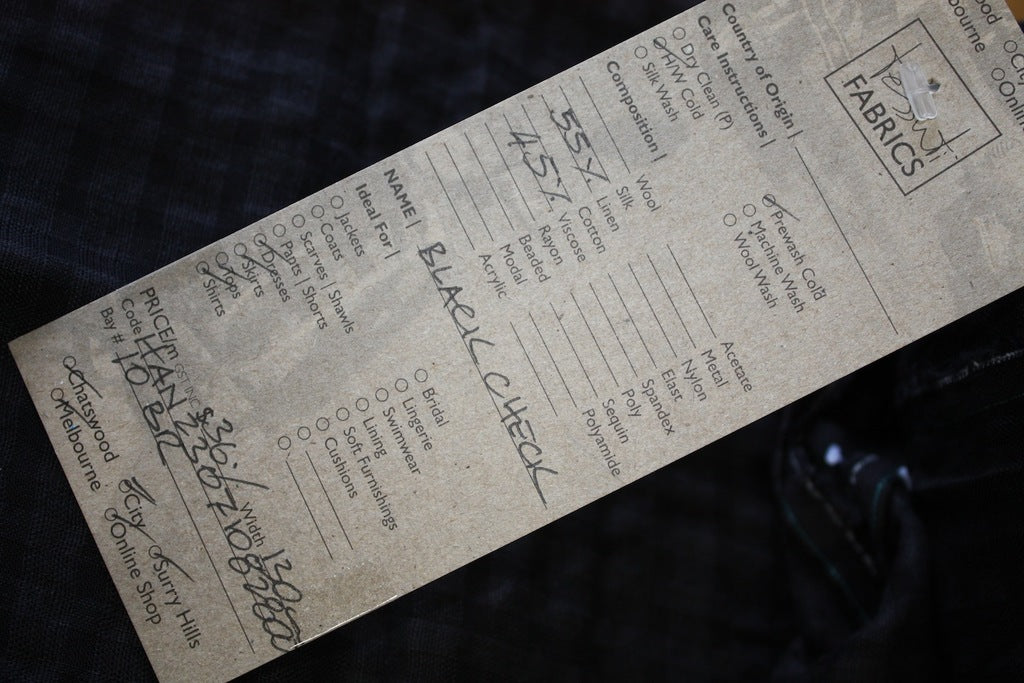 Tessuti
FABRICS
Country of Origin |
Care Instructions |
Dry Clean (P)
H/W Cold
Silk Wash
Prewash Cold
Machine Wash
Wool Wash
Composition |
Wool
Silk
55% Linen
Cotton
45% Viscose
Rayon
Beaded
Modal
Acrylic
Acetate
Metal
Nylon
Elast
Spandex
Poly
Sequin
Polyamide
NAME | BLACK CHECK
Ideal For |
Jackets
Coats
Scarves | Shawls
Pants | Shorts
Dresses
Skirts
Tops
Shirts
Bridal
Lingerie
Swimwear
Lining
Soft Furnishings
Cushions
PRICE/m GST INC $36./ Width
Code HAN
Bay # 10
Chatswood City Surry Hills
Melbourne Online Shop